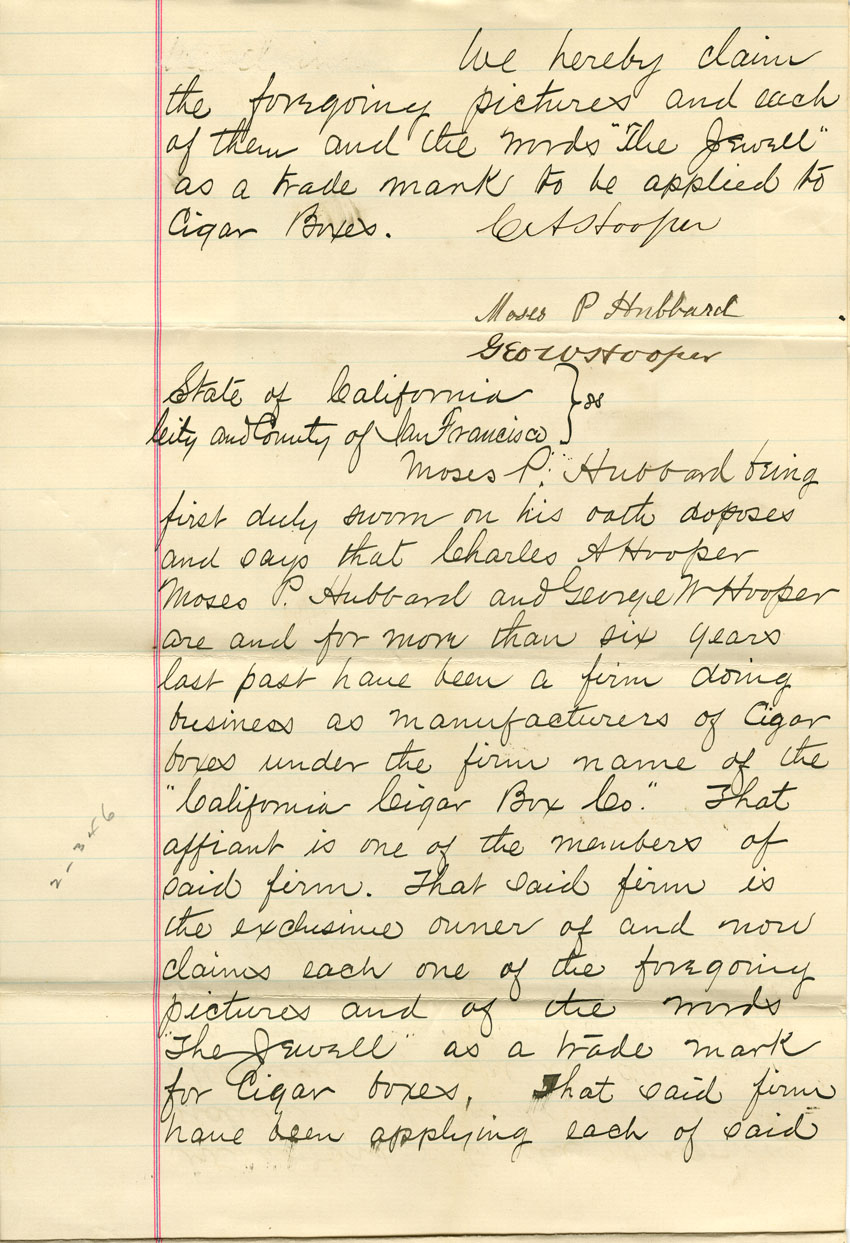 We hereby claim
the foregoing pictures and each
of them and the words "The Jewell"
as a trade mark to be applied to
Cigar Boxes. C A Hooper
Moses P Hubbard
Geo W Hooper
State of California } ss
City and County of San Francisco
Moses P. Hubbard being
first duly sworn on his oath doposes
and says that Charles A Hooper
Moses P. Hubbard and George W Hooper
are and for more than six years
last past have been a firm doing
business as manufacturers of Cigar
boxes under the firm name of the
"California Cigar Box Co." That
affiant is one of the members of
said firm. That said firm is
the exclusive owner of and now
claims each one of the foregoing
pictures and of the words
"The Jewell" as a trade mark
for Cigar boxes, That said firm
have been applying each of said